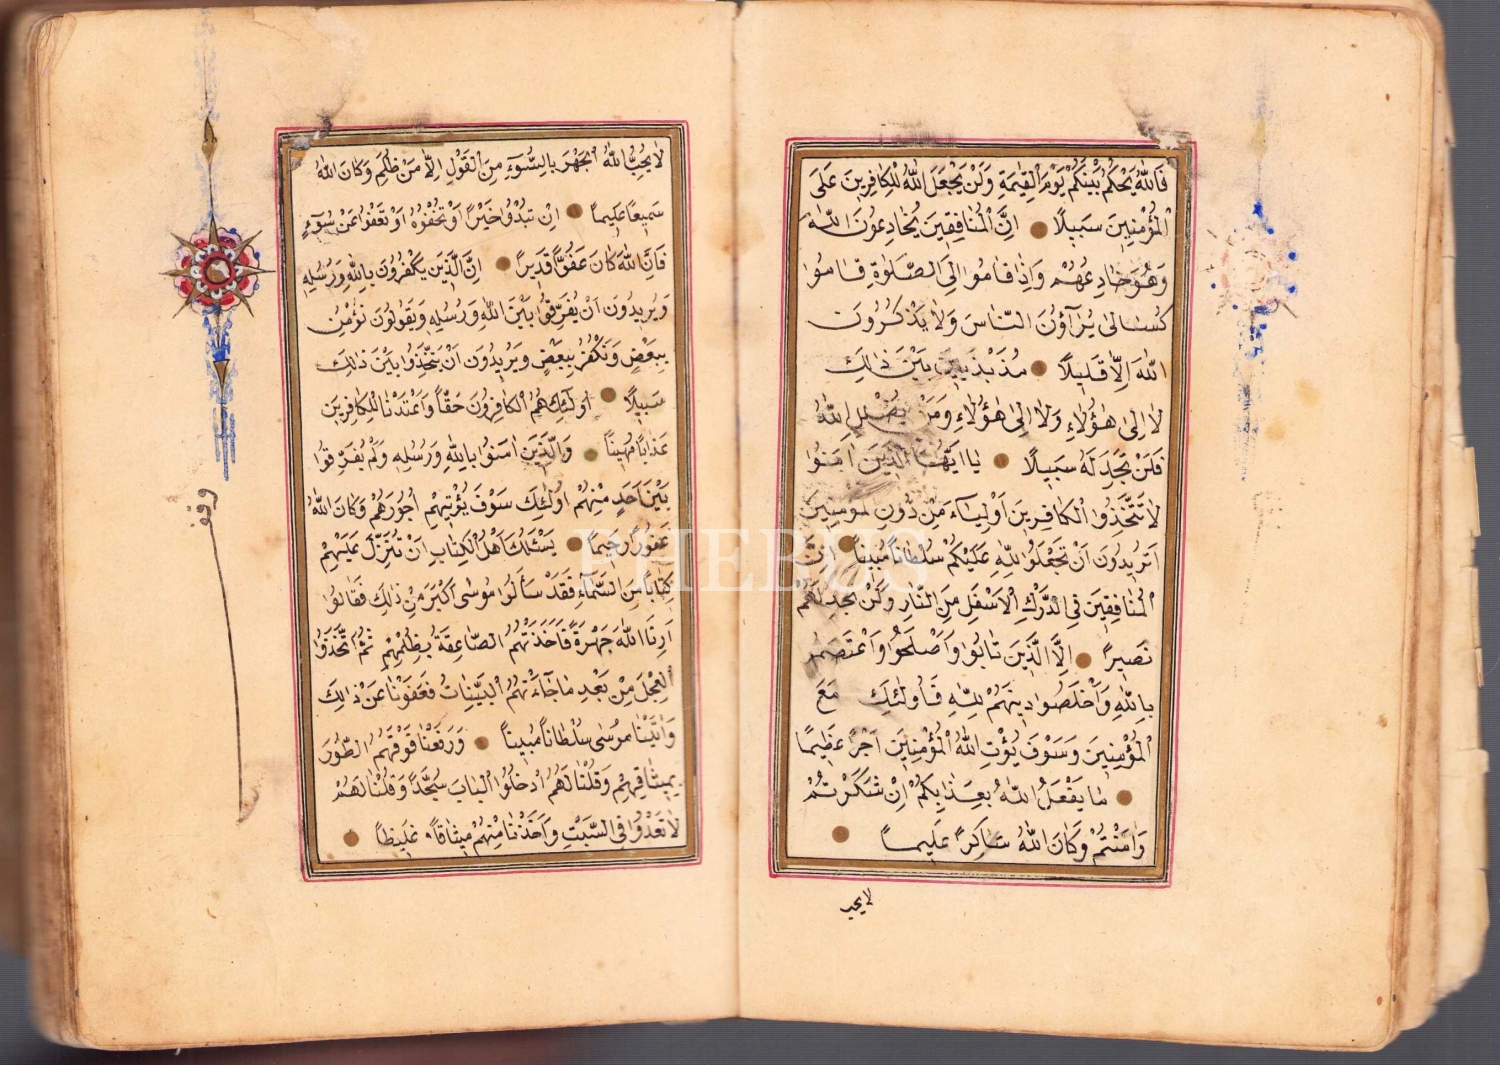 فَاللّٰهُ يَحْكُمُ بَيْنَكُمْ يَوْمَ الْقِيٰمَةِ وَلَنْ يَجْعَلَ اللّٰهُ لِلْكَافِرِينَ عَلَى
الْمُؤْمِنِينَ سَبِيلًا اِنَّ الْمُنَافِقِينَ يُخَادِعُونَ اللّٰهَ
وَهُوَ خَادِعُهُمْ وَاِذَا قَامُوا اِلَى الصَّلٰوةِ قَامُوا
كُسَالٰى يُرَآؤُنَ النَّاسَ وَلَا يَذْكُرُونَ
اللّٰهَ اِلَّا قَلِيلًا مُذَبْذَبِينَ بَيْنَ ذٰلِكَ
لَا اِلٰى هٰؤُلَاءِ وَلَا اِلٰى هٰؤُلَاءِ وَمَنْ يُضْلِلِ اللّٰهُ
فَلَنْ تَجِدَ لَهُ سَبِيلًا يَا اَيُّهَا الَّذِينَ اٰمَنُوا
لَا تَتَّخِذُوا الْكَافِرِينَ اَوْلِيَآءَ مِنْ دُونِ الْمُؤْمِنِينَ
اَتُرِيدُونَ اَنْ تَجْعَلُوا لِلّٰهِ عَلَيْكُمْ سُلْطَانًا مُبِينًا اِنَّ
الْمُنَافِقِينَ فِي الدَّرْكِ الْاَسْفَلِ مِنَ النَّارِ وَلَنْ تَجِدَ لَهُمْ
نَصِيرًا اِلَّا الَّذِينَ تَابُوا وَاَصْلَحُوا وَاعْتَصَمُوا
بِاللّٰهِ وَاَخْلَصُوا دِينَهُمْ لِلّٰهِ فَاُولٰئِكَ مَعَ
الْمُؤْمِنِينَ وَسَوْفَ يُؤْتِ اللّٰهُ الْمُؤْمِنِينَ اَجْرًا عَظِيمًا
مَا يَفْعَلُ اللّٰهُ بِعَذَابِكُمْ اِنْ شَكَرْتُمْ
وَاٰمَنْتُمْ وَكَانَ اللّٰهُ شَاكِرًا عَلِيمًا
لا يحب
لَا يُحِبُّ اللّٰهُ الْجَهْرَ بِالسُّوءِ مِنَ الْقَوْلِ اِلَّا مَنْ ظُلِمَ وَكَانَ اللّٰهُ
سَمِيعًا عَلِيمًا اِنْ تُبْدُوا خَيْرًا اَوْ تُخْفُوهُ اَوْ تَعْفُوا عَنْ سُوءٍ
فَاِنَّ اللّٰهَ كَانَ عَفُوًّا قَدِيرًا اِنَّ الَّذِينَ يَكْفُرُونَ بِاللّٰهِ وَرُسُلِهِ
وَيُرِيدُونَ اَنْ يُفَرِّقُوا بَيْنَ اللّٰهِ وَرُسُلِهِ وَيَقُولُونَ نُؤْمِنُ
بِبَعْضٍ وَنَكْفُرُ بِبَعْضٍ وَيُرِيدُونَ اَنْ يَتَّخِذُوا بَيْنَ ذٰلِكَ
سَبِيلًا اُولٰئِكَ هُمُ الْكَافِرُونَ حَقًّا وَاَعْتَدْنَا لِلْكَافِرِينَ
عَذَابًا مُهِينًا وَالَّذِينَ اٰمَنُوا بِاللّٰهِ وَرُسُلِهِ وَلَمْ يُفَرِّقُوا
بَيْنَ اَحَدٍ مِنْهُمْ اُولٰئِكَ سَوْفَ يُؤْتِيهِمْ اُجُورَهُمْ وَكَانَ اللّٰهُ
غَفُورًا رَحِيمًا يَسْئَلُكَ اَهْلُ الْكِتَابِ اَنْ تُنَزِّلَ عَلَيْهِمْ
كِتَابًا مِنَ السَّمَآءِ فَقَدْ سَاَلُوا مُوسٰى اَكْبَرَ مِنْ ذٰلِكَ فَقَالُوا
اَرِنَا اللّٰهَ جَهْرَةً فَاَخَذَتْهُمُ الصَّاعِقَةُ بِظُلْمِهِمْ ثُمَّ اتَّخَذُوا
الْعِجْلَ مِنْ بَعْدِ مَا جَآءَتْهُمُ الْبَيِّنَاتُ فَعَفَوْنَا عَنْ ذٰلِكَ
وَاٰتَيْنَا مُوسٰى سُلْطَانًا مُبِينًا وَرَفَعْنَا فَوْقَهُمُ الطُّورَ
بِمِيثَاقِهِمْ وَقُلْنَا لَهُمُ ادْخُلُوا الْبَابَ سُجَّدًا وَقُلْنَا لَهُمْ
لَا تَعْدُوا فِي السَّبْتِ وَاَخَذْنَا مِنْهُمْ مِيثَاقًا غَلِيظًا
وقف
PHEBUS